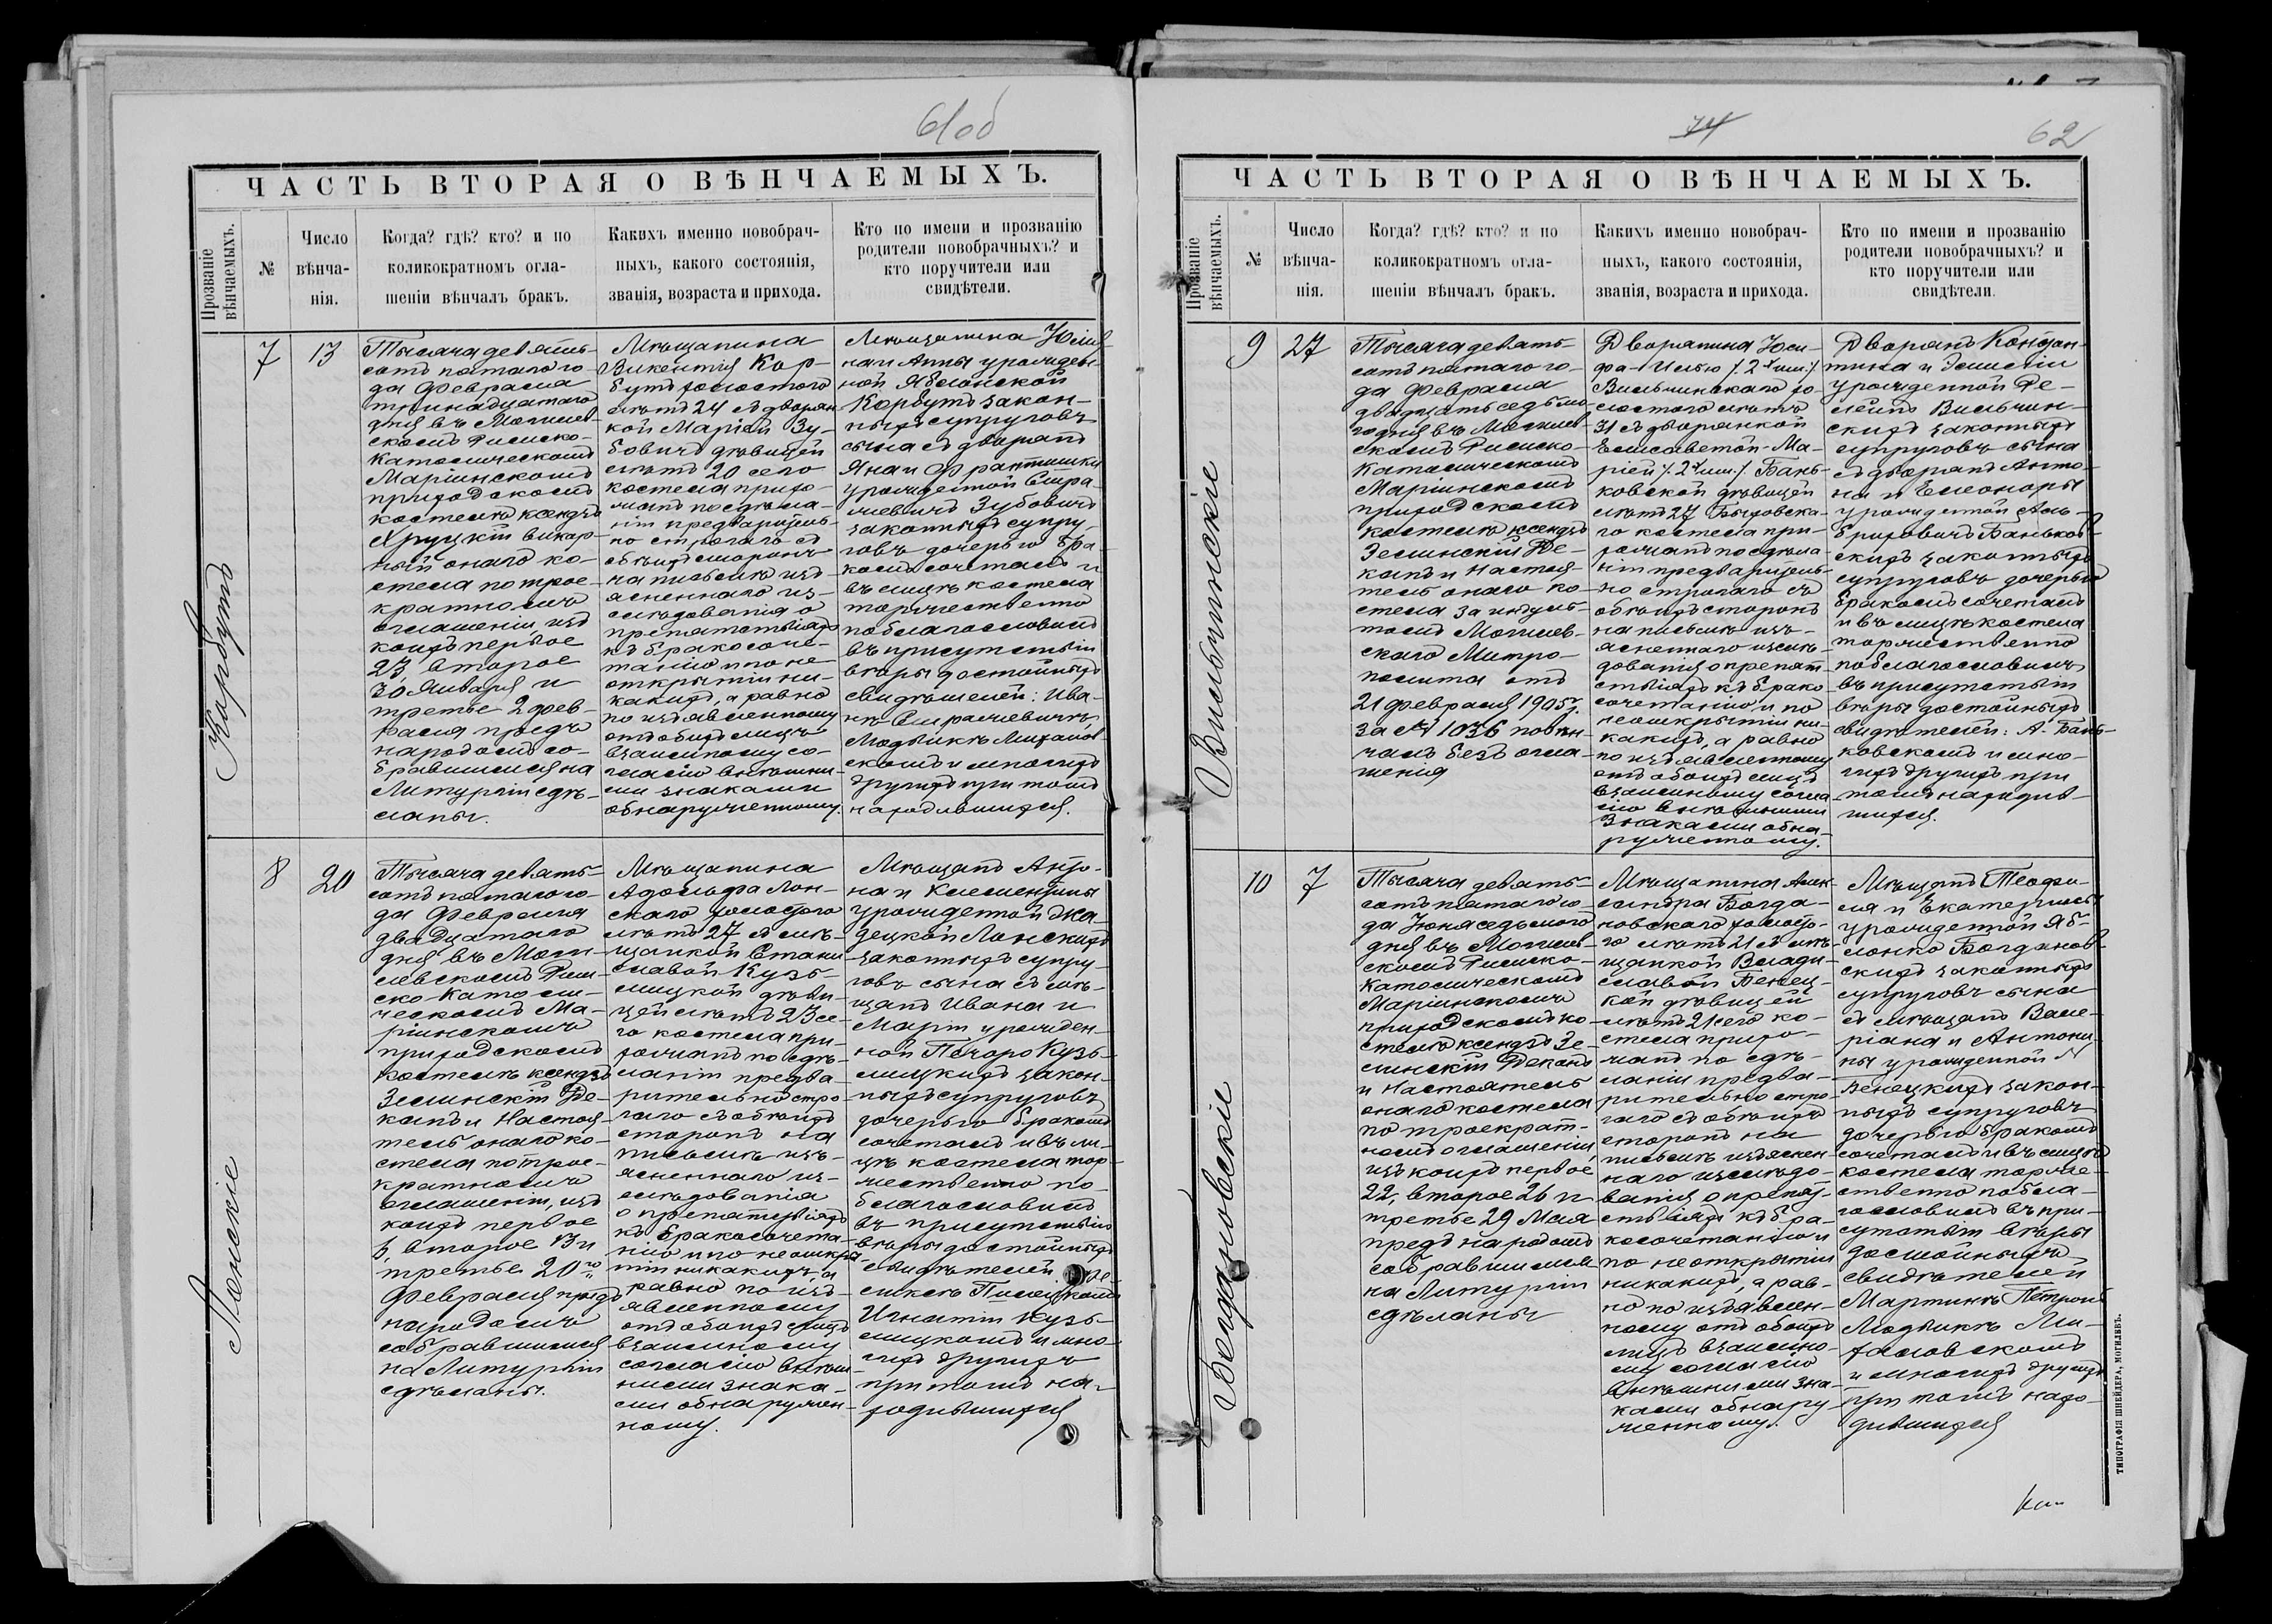 61об
ЧАСТЬ ВТОРАЯ О ВѢНЧАЕМЫХЪ.
Прозваніе вѣнчаемыхъ.
№
Число вѣнча-
нія.
Когда? гдѣ? кто? и по
коликократномъ огла-
шеніи вѣнчалъ бракъ.
Какихъ именно новобрач-
ныхъ, какого состоянія,
званія, возраста и прихода.
Кто по имени и прозванію
родители новобрачныхъ? и
кто поручители или
свидѣтели.
Карбутъ
7
13
Тысяча девять-
сотъ пятаго го-
да Февраля
тринадцатаго
дня въ Могилев-
скомъ Римско-
Католическомъ
Маріинскомъ
приходскомъ
костелѣ ксендзъ
Хруцкій викар-
ный онаго ко-
стела по трое-
кратномъ
оглашеніи изъ
коихъ первое
27, второе
30 Января и
третье 2 фев-
раля предъ
народомъ со-
бравшимся на
Литургіи сдѣ-
ланы.
Мѣщанина
Викентія Кор-
бутъ холостого
лѣтъ 24 съ дворян
кой Маріей Зу-
бовичъ дѣвицей
лѣтъ 20 сего
костела прихо-
жанъ по сдѣла-
ніи предваритель-
но строгаго съ
обѣихъ сторонъ
на письмѣ изъ-
ясненнаго из-
слѣдованія о
препятствіяхъ
къ бракосоче-
танію и по не
открытіи ни-
какихъ, а равно
по изъявленному
отъ обоихъ лицъ
взаимному со-
гласію внѣшни-
ми знаками
обнаруженному.
Мѣщанина Юлі
на и Анны урожден-
ной Яблонской
Корбутъ закон-
ныхъ супруговъ
сына съ дворянъ
Яна и Франтишки
урожденной Сипра-
жевичъ Зубовичъ
законныхъ супру-
говъ дочерью бра-
комъ сочеталъ и
въ лицѣ костела
торжественно
поблагословилъ
въ присутствіи
вѣры достойныхъ
свидѣтелей: Ива-
нѣ
Людвикѣ Михалов
скомъ и многихъ
другихъ при томъ
находившихся.
Лонскіе
8
20
Тысяча девять-
сотъ пятаго го-
да Февраля
двадцатаго
дня въ Моги-
левскомъ Рим-
ско-Католи-
ческомъ Ма-
ріинскомъ
приходскомъ
костелѣ ксендзъ
Зелинскій Де-
канъ и Настоя-
тель онаго ко-
стела по трое-
кратномъ
оглашеніи, изъ
коихъ первое
6, второе 13 и
третье 20го
Февраля предъ
народомъ
собравшимся
на Литургіи
сдѣланы.
Мѣщанина
Адольфа Лон-
скаго холостого
лѣтъ 27 съ мѣ-
щанкой Стани
славой Кузь-
мицкой дѣви-
цей лѣтъ 23 се-
го костела при-
хожанъ по сдѣ-
ланіи предва-
рительно стро-
гаго съ обѣихъ
сторонъ на
письмѣ изъ-
ясненнаго из-
слѣдованія
о препятствіяхъ
къ бракосочета-
нію и по не откры-
тіи никакихъ, а
равно по изъ-
явленному
отъ обоихъ лицъ
взаимному
согласію внѣш-
ними знака-
ми обнаружен-
ному.
Мѣщанъ Анто-
на и Клементины
урожденной Жа-
децкой Лонскихъ
законныхъ супру-
говъ сына съ мѣ-
щанъ Ивана и
Маріи урожден-
ной Печоро Кузь-
мицкихъ закон-
ныхъ супруговъ
дочерью бракомъ
сочеталъ и въ ли-
цѣ костела тор-
жественно по-
благословилъ
въ присутствіи
вѣры достойныхъ
свидѣтелей:
Игнатіи Кузь-
мицкомъ и мно-
гихъ другихъ
при томъ на-
ходившихся
74
62
ЧАСТЬ ВТОРАЯ О ВѢНЧАЕМЫХЪ.
Прозваніе вѣнчаемыхъ.
№
Число вѣнча-
нія.
Когда? гдѣ? кто? и по
коликократномъ огла-
шеніи вѣнчалъ бракъ.
Какихъ именно новобрач-
ныхъ, какого состоянія,
званія, возраста и прихода.
Кто по имени и прозванію
родители новобрачныхъ? и
кто поручители или
свидѣтели.
Вильчинскіе
9
27
Тысяча девять-
сотъ пятаго го-
да Февраля
двадцать седьма-
го дня въ Могилев-
скомъ Римско-
Католическомъ
Маріинскомъ
приходскомъ
костелѣ ксендзъ
Зелинскій Де-
канъ и Настоя-
тель онаго ко-
стела за индуль-
томъ Могилев-
скаго Митро-
полита отъ
21 Февраля 1905 г.
за № 1036 повѣн-
чалъ безъ огла-
шенія
Дворянина Юси-
фа-Илью /. 2хъ им: /.
Вильчинскаго хо-
лостого лѣтъ
31 съ дворянкой
Елисаветой-Ма-
ріей /. 2хъ им: /. Бань-
ковской дѣвицей
лѣтъ 27 Быховска-
го костела при-
хожанъ по сдѣла-
ніи предваритель-
но строгаго съ
обѣихъ сторонъ
на письмѣ изъ-
ясненнаго изслѣ-
дованія о препят-
ствіяхъ къ брако-
сочетанію и по
неоткрытіи ни-
какихъ, а равно
по изъявленному
отъ обоихъ лицъ
взаимному согла
сію внѣшними
знаками обна-
руженному.
Дворянъ Констан-
тина и Эмиліи
урожденной Фе-
Вильчин-
скихъ законныхъ
супруговъ сына
съ дворянъ Анто-
на и Элеоноры
урожденной Аль-
бриховичъ Баньков-
скихъ законныхъ
супруговъ дочерью
бракомъ сочеталъ
и въ лицѣ костела
торжественно
поблагословилъ
въ присутствіи
вѣры достойныхъ
свидѣтелей: А. Бань-
ковскомъ и мно-
гихъ другихъ при
томъ находив-
шихся.
Богдановскіе
10
7
Тысяча девять-
сотъ пятаго го-
да Юня седьмого
дня въ Могилев-
скомъ Римско-
Католическомъ
Маріинскомъ
приходскомъ ко-
стелѣ ксендзъ Зе-
линскій Деканъ
и Настоятель
онаго костела
по троекрат-
номъ оглашеніи,
изъ коихъ первое
22, второе 26 и
третье 29 Мая
предъ народомъ
собравшимся
на Литургіи
сдѣланы
Мѣщанина Алек-
сандра Богда-
новскаго холосто-
го лѣтъ 21 съ мѣ-
щанкой Влади-
славой Бенец-
кой дѣвицей
лѣтъ 21 сего ко-
стела прихо-
жанъ по сдѣ-
ланіи предва-
рительно стро-
гаго съ обѣихъ
сторонъ на
письмѣ изъяснен-
наго изслѣдо-
ванія о препят-
ствіяхъ къ бра-
косочетанію и
по не открытіи
никакихъ, а рав-
но по изъявлен-
ному отъ обоихъ
лицъ взаимно-
му согласію
внѣшними зна-
ками обнару-
женному.
Мѣщанъ Теофи-
ля и Екатерины
урожденной Яб-
лонко Богданов-
скихъ законныхъ
супруговъ сына
съ мѣщанъ Вале-
ріана и Антони-
ны урожденной N
Бенецкихъ закон-
ныхъ супруговъ
дочерью бракомъ
сочеталъ и въ лицѣ
костела торже-
ственно побла-
гословилъ въ при-
сутствіи вѣры
достойныхъ
свидѣтелей
Мартинѣ Петров
Людвикѣ Ми-
халовскомъ
и многихъ другихъ
при томъ нахо-
дившихся
ТИПОГРАФІЯ ШНЕЙДЕРА, МОГИЛЕВЪ.